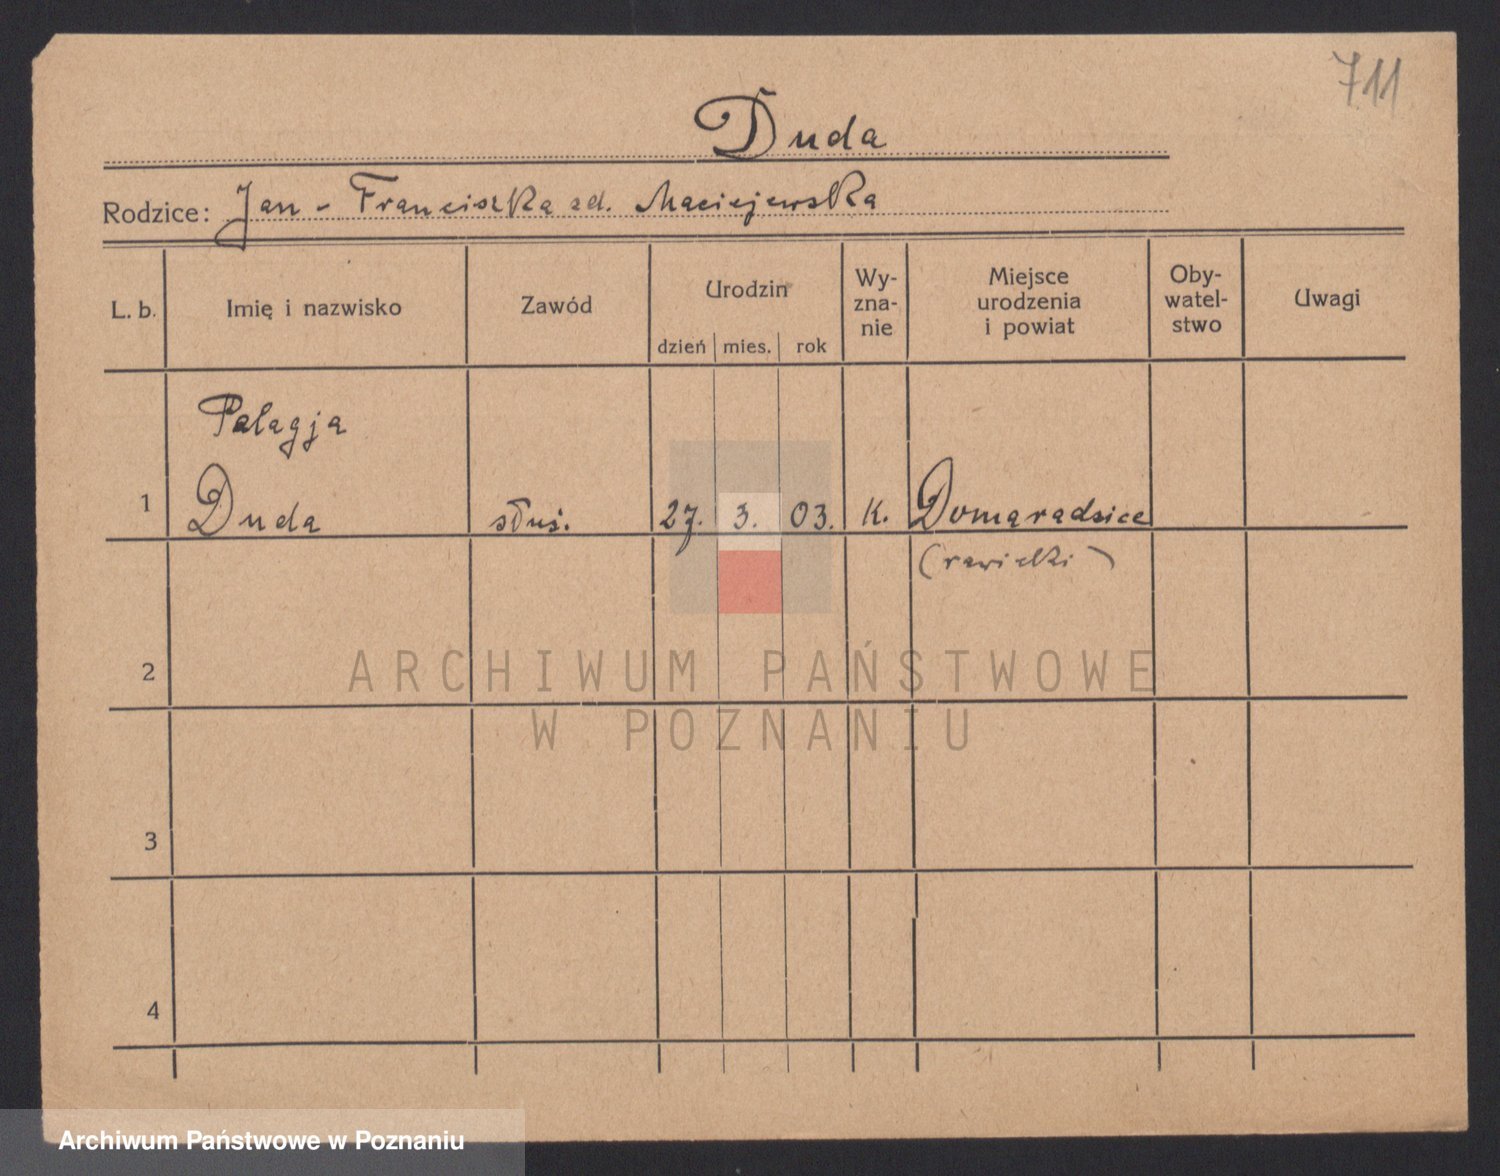 711
Duda
Rodzice: Jan - Franciszka zd. Maciejewska
L. b. Imię i nazwisko Zawód Urodzin dzień mies. rok Wy-zna-nie Miejsce urodzenia i powiat Oby-watel-stwo Uwagi
Pelagja
1 Duda służ. 27. 3. 03. K. Domaradzice
(rawicki)
2
ARCHIWUM PAŃSTWOWE
W POZNANIU
3
4
Archiwum Państwowe w Poznaniu